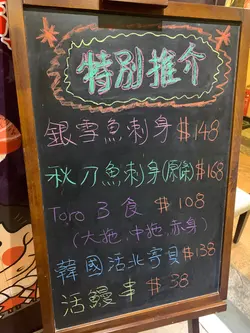 特別推介
銀雪魚刺身 $148
秋刀魚刺身(原條) $168
Toro 3 食 $108
(大拖, 中拖, 赤身)
韓國活北寄貝 $138
活鰻串 $38